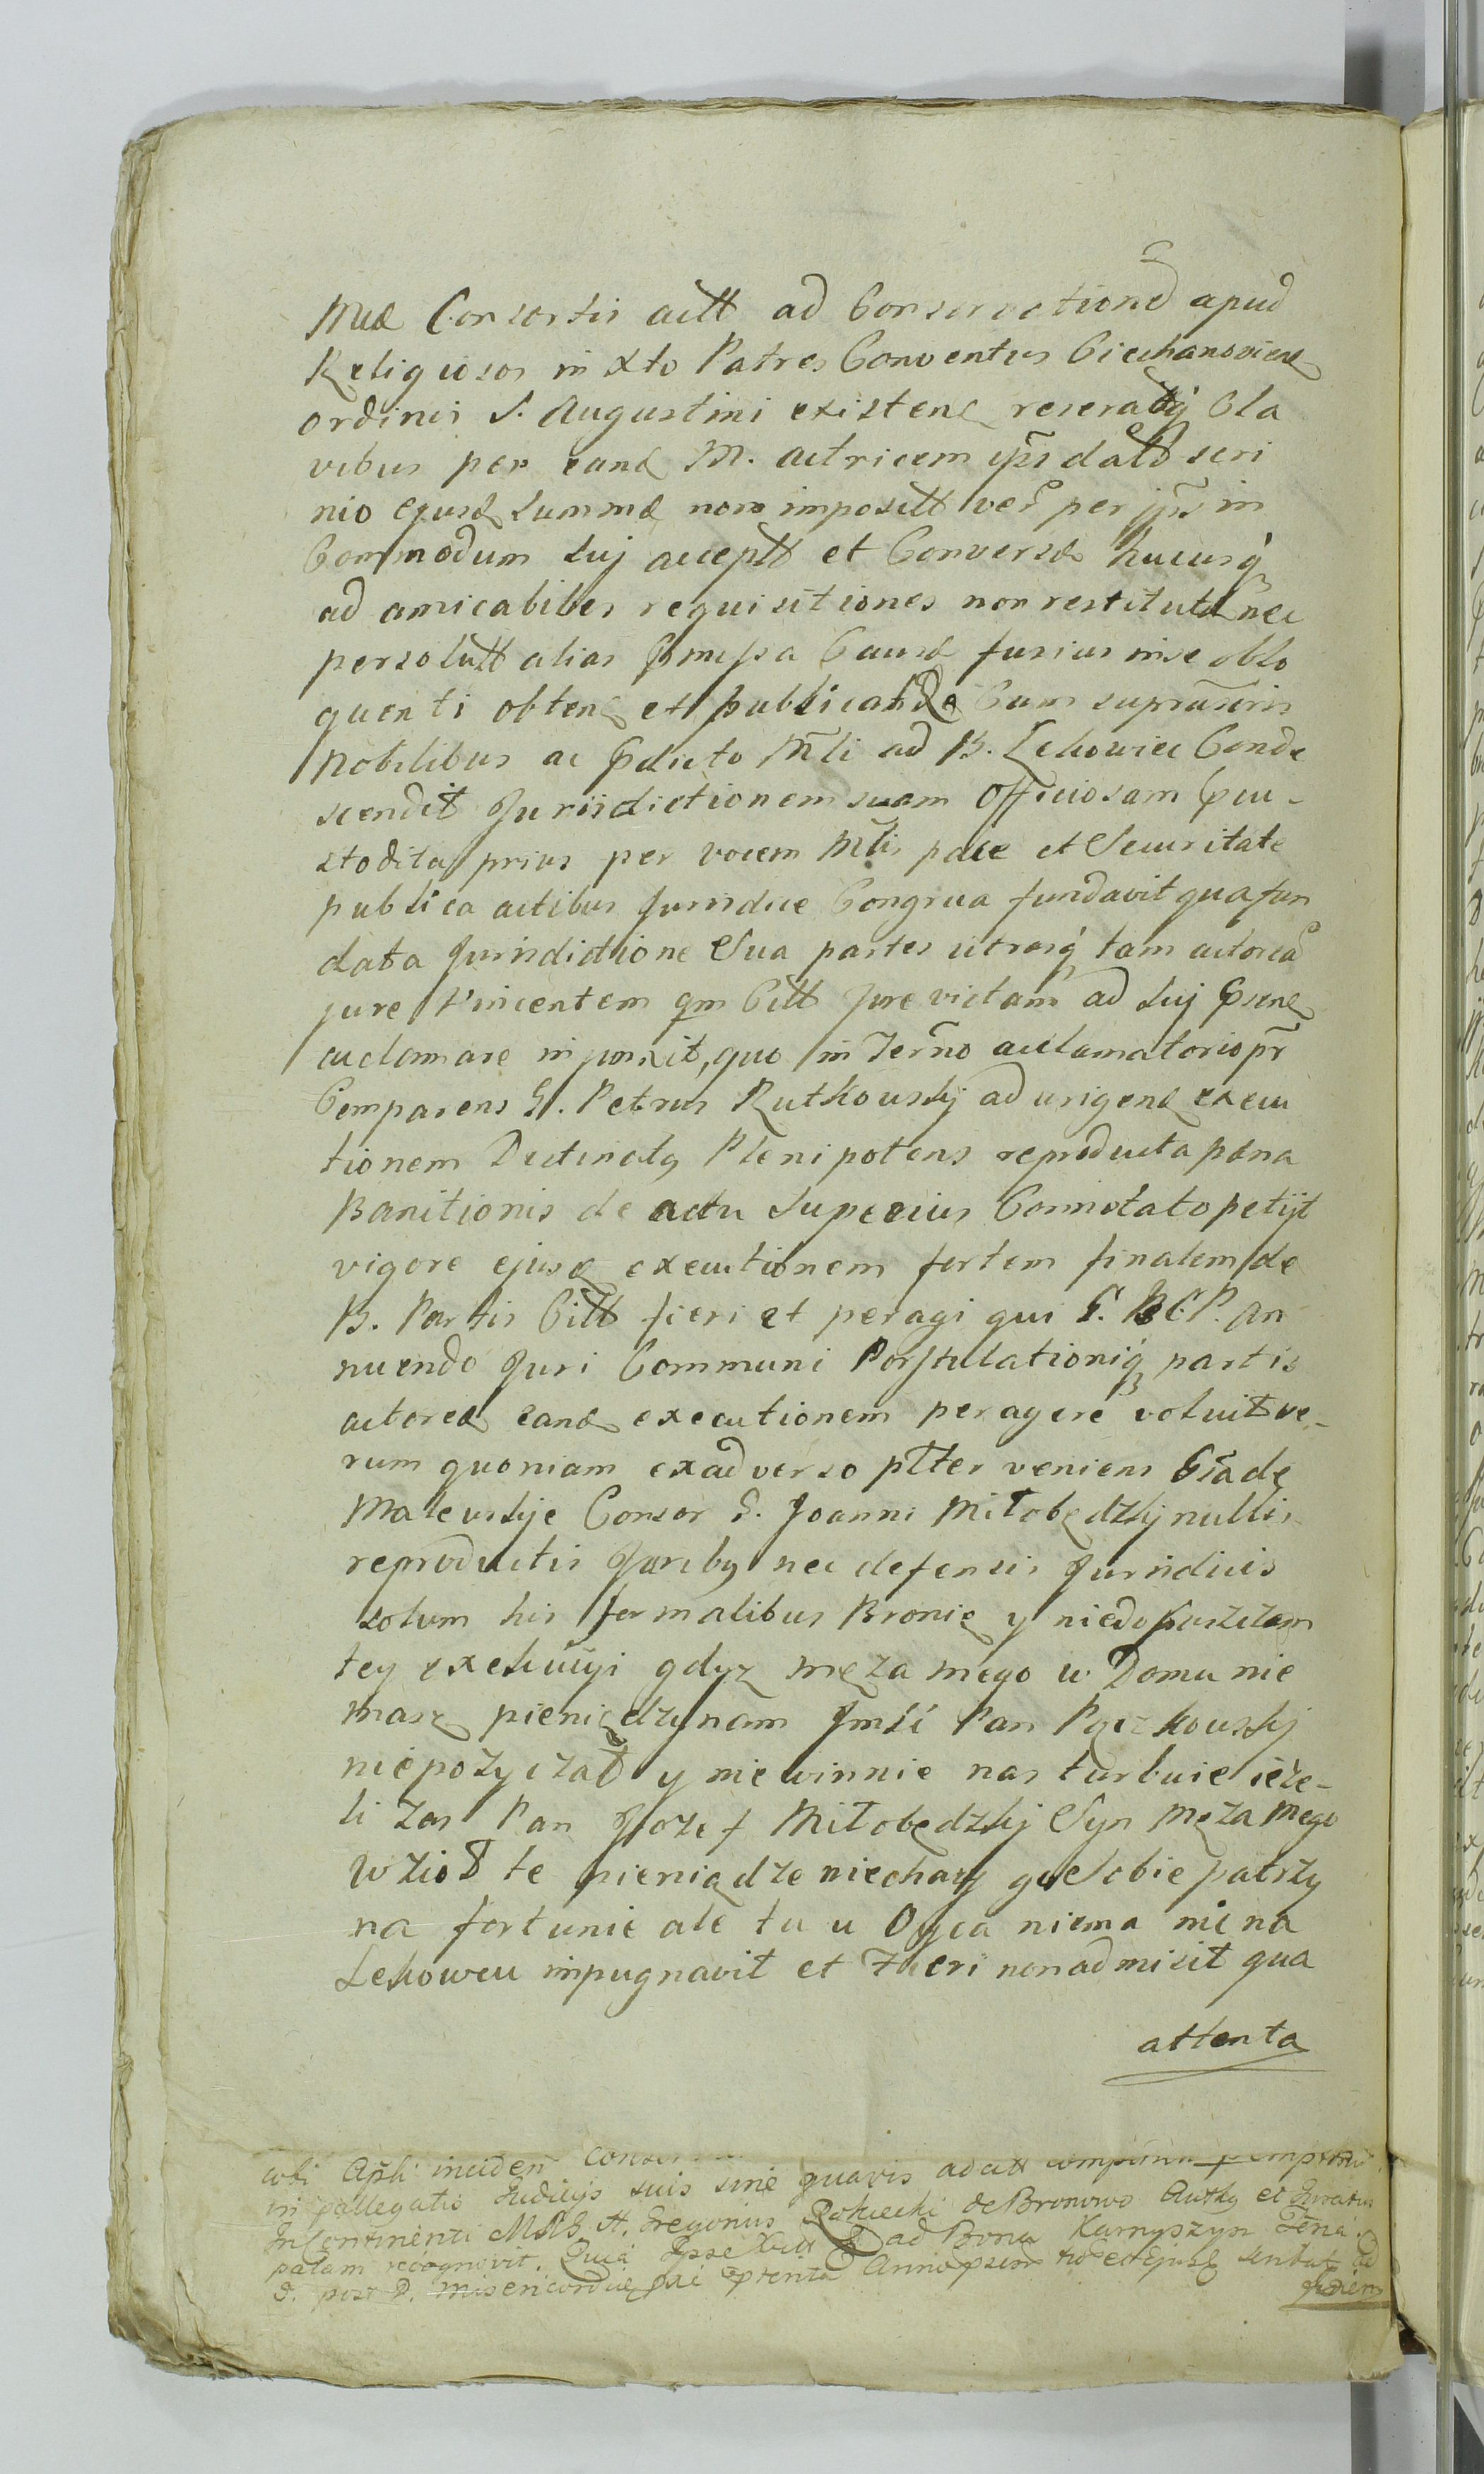 Meæ Consortis actt ad Conservationē apud
Religiosos in Xto Patres Conventus Ciechanoviens
ordinis S. Augustini existenē reseratis Cla
vibus per eandē M. actricem ipsi datt scri
nio ejusdē summæ non impositt verº per ips in
Commodum suj acceptt et Conversæ hucusq
ad amicabiles requisitiones non restitutæ nec
persolutt alias p̃missa Causā fusius in se oblo
quenti obtenē et publicatæ Cum suprascris
Nobilibus ac p̃dicto M̃li ad B. Lekowiec Conde
scendit Jurisdictionem suam Officiosam p̃cu-
stodita prius per vocem M̃lis pace et Securitate
publica actibus Juridice Congrua fundavit qua fun
data Jurisdictione Sua partes utrasq tam actoreā
jure Vincentem qm Citt Jure victam ad suj p̃senē
acclamare injunxit, quo in Ter̃no acclamatorio pr̃
Comparens G. Petrus Rutkowskj ad urigenē execu
tionem Destinatg Plenipotens reproducta pæna
Banitionis de actu Superius Connotato petijt
vigore ejusdē executionem fortem finalem de
B. Partis Citt fieri et peragi qui G. B.C.P. An
nuendo Juri Communi Postulationiq partis
actoreæ eandē executionem peragere voluit ve-
rum quoniam exadverso pltter veniens G
Malewskje Consor G. Joanni Miłobędzkj nullis
reproductis Juribg nec defensis Juridicis
solum his formalibus Bronię y niedopuszczam
tey exekucyi gdyz męza mego w Domu nie
masz pieniędzy nam Jmsć Pan Pączkowskj
niepozyczał y niewinnie nas turbuie ieze-
li zas Pan Jozef Miłobędzkj Syn Męza Mego
Wzioł te pieniądze niechay go Sobie patrzy
na fortunie ale tu u Oyca niema nic na
Lekowcu impugnavit et Fieri non admisit qua
attenta
ubi Ap̃li inciden̄
in pallegatis Judicijs suis sine quavis adcitt
Incontinenti M.R.G. A. Gregorius de Bronowo Authg et Juratus
palam recognovit. Quia Ipse ad Bona Karnyszyn
F. post D. Misericordiæ p̃xi p̃terita Anno
fidem